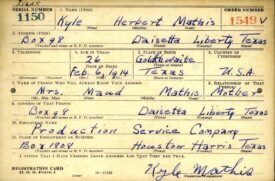 SERIAL NUMBER 1. NAME (Print) ORDER NUMBER
1150 Kyle Herbert Mathis 1549
(First) (Middle) (Last)
2. ADDRESS (Print)
Box 98 Daisetta Liberty Texas
3. TELEPHONE 4. AGE IN YEARS 5. PLACE OF BIRTH 6. COUNTRY OF CITIZENSHIP
26 Goldthwaite
DATE OF BIRTH
Feb. 6, 1914 Texas U.S.A.
7. NAME OF PERSON WHO WILL ALWAYS KNOW YOUR ADDRESS
Mrs. Maud Mathis Mother
Box 98 Daisetta Liberty Texas
Production Service Company
Box 1909 Houston Harris Texas
I AFFIRM THAT I HAVE VERIFIED ABOVE ANSWERS AND THAT THEY ARE TRUE.
REGISTRATION CARD
D. S. S. Form 1 Kyle Mathis